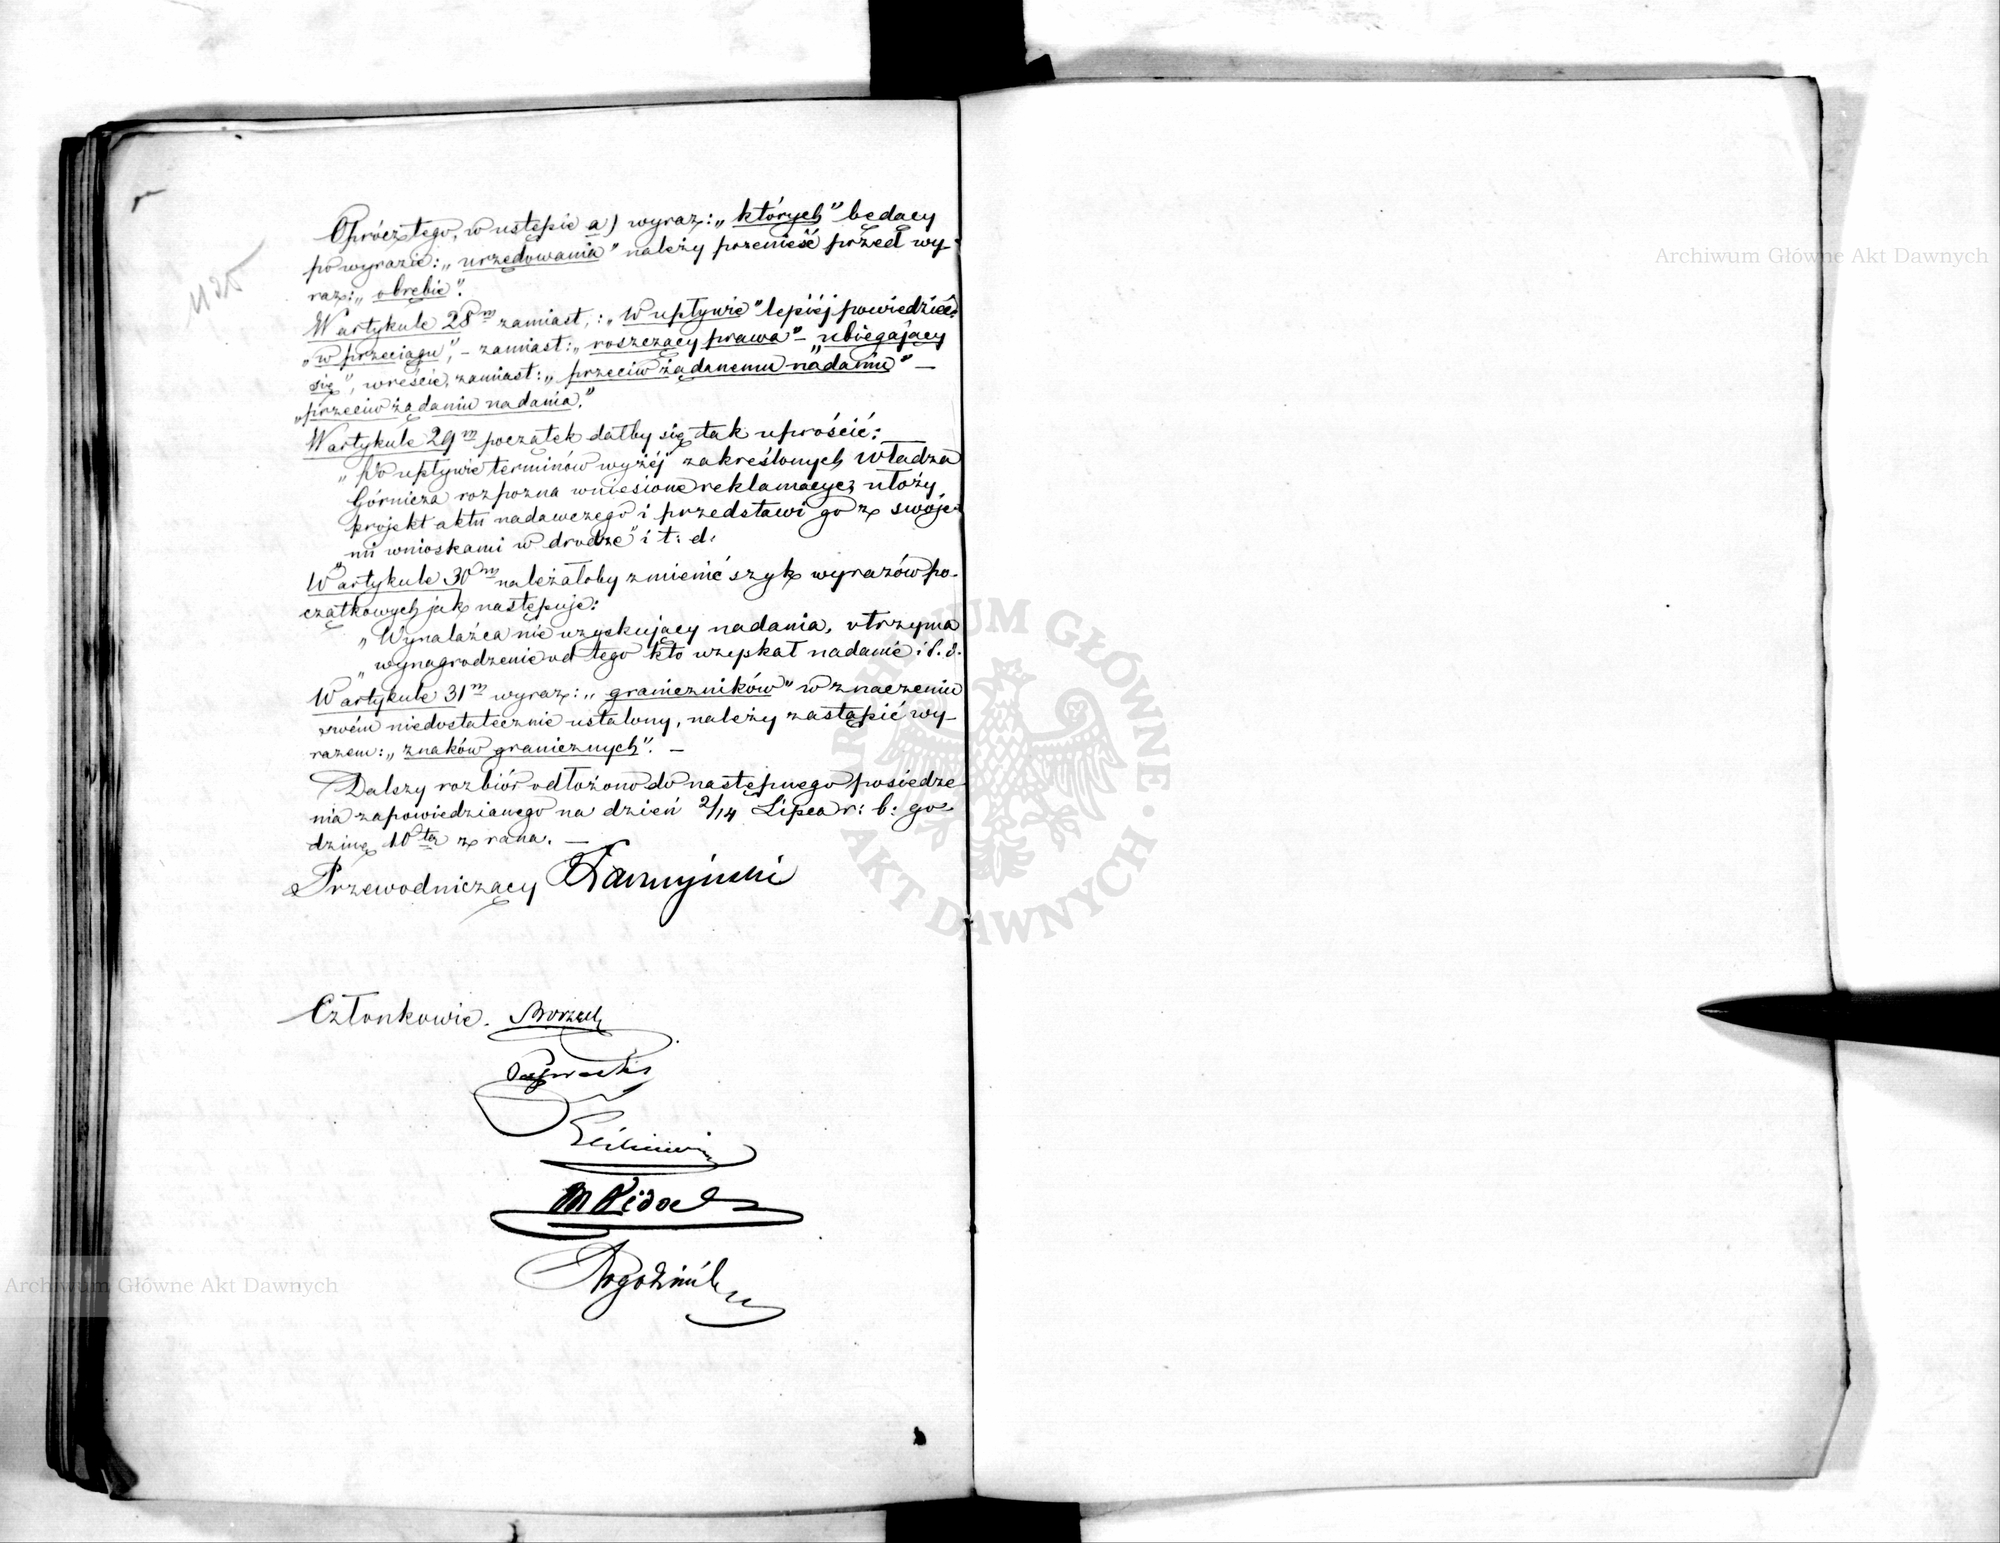 Oprócz tego, w ustępie a) wyraz: „których" będący
po wyrazie: „urzędowania" należy przenieść przed wy-
raz: „obrębie".
W artykule 28m zamiast: „W upływie" lepiéj powiedzieć
„w przeciągu", – zamiast: „roszczący prawa" – „ubiegający
się", wreście, zamiast: „przeciw żądanemu nadaniu" –
„przeciw żądaniu nadania."
W artykule 29m początek dałby się tak uprościć:
„Po upływie terminów wyżéj zakreślonych Władza
Górnicza rozpozna wniesione reklamacye, ułoży
projekt aktu nadawczego i przedstawi go z swoje-
mi wnioskami w drodze" i t: d.
W artykule 30m należałoby zmienić szyk wyrazów po-
czątkowych jak następuje:
„Wynalazca nie uzyskujący nadania, otrzyma
„wynagrodzenie od tego kto uzyskał nadanie i t. d.
W artykule 31m wyraz: „graniczników" w znaczeniu
swém niedostatecznie ustalony, należy zastąpić wy-
razem: „znaków granicznych". –
Dalszy rozbiór odłożono do następnego posiedze-
nia zapowiedzianego na dzień 2/14 Lipca r: b: go-
dzinę 10tą z rana. –
Przewodniczący
Członkowie.
Archiwum Główne Akt Dawnych
Archiwum Główne Akt Dawnych
ARCHIWUM GŁÓWNE AKT DAWNYCH